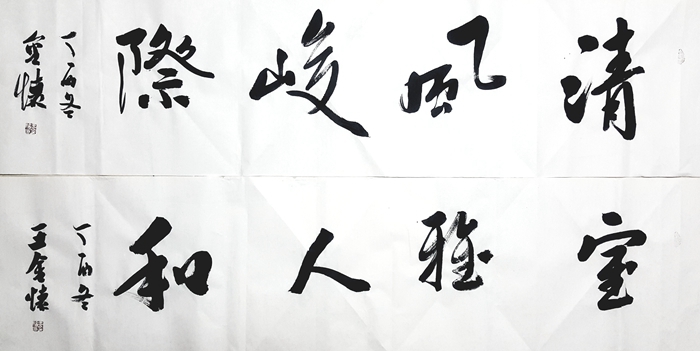 清風峻際
丁酉冬
金懷
室雅人和
丁酉冬
王金懷